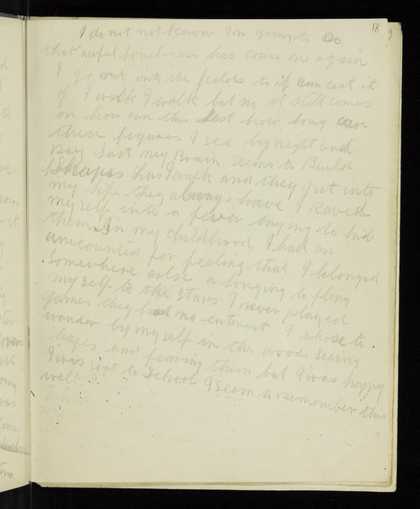 18 9
I do not know
that awful loneliness has come on again
I go out into the fields to if can cast it
of I walk I walk but no it still comes
on how can this last how long can
these figures I see by night and
day last my brain seems to Build
Shapes has taught and they get into
my life they always have I Rave
myself into a fever trying to hid
them In my childhood I had an
uncounted for feeling that I belonged
somewhere else a longing to fling
myself to the stars I never played
games they had no interest I chose to
wander by my self in the woods seeing
shapes and forming them but I was happy
I was sent to School I seem to remember this
well